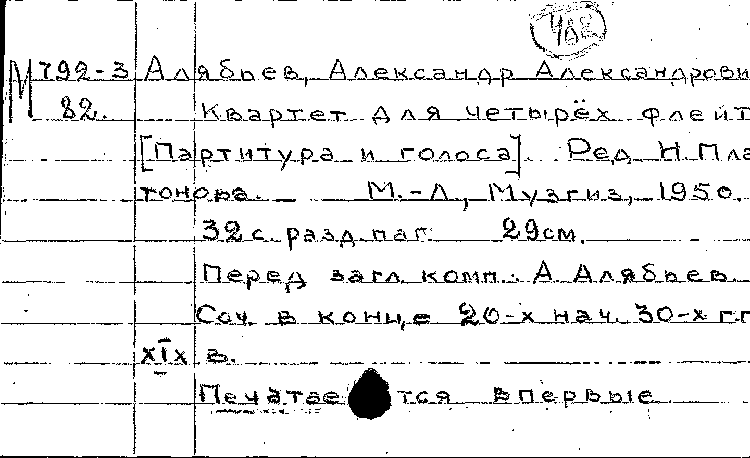 482
М 792-3 Алябьев, Александр Александрови
82. Квартет для четырёх флейт
[Партитура и голоса]. Ред. Н. Пла
тонова. М.-Л., Музгиз, 1950.
32 с. разд. паг. 29 см.
Перед загл. комп.: А. Алябьев
Соч. в конце 20-х нач. 30-х г.г
XIX в.
Печатае тся впервые